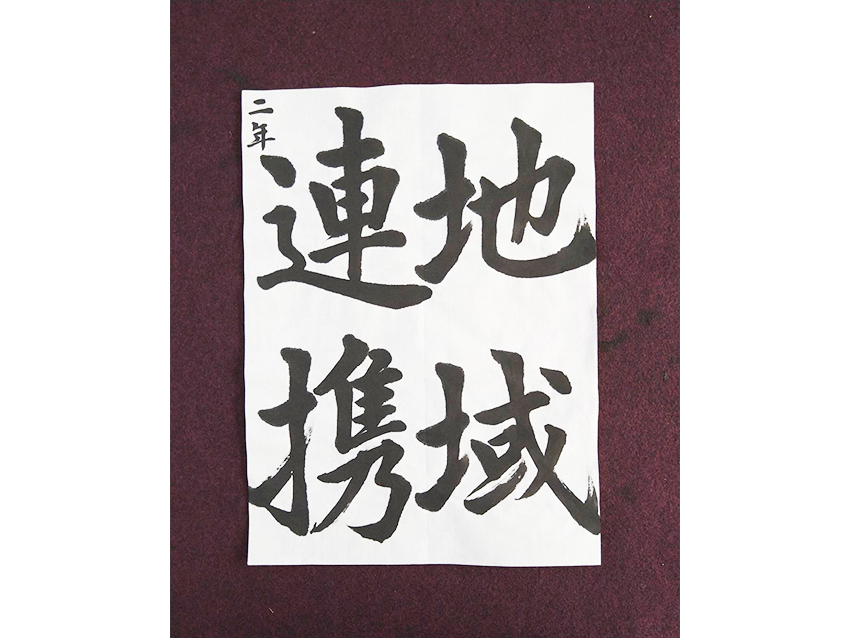 地域
連携
二年